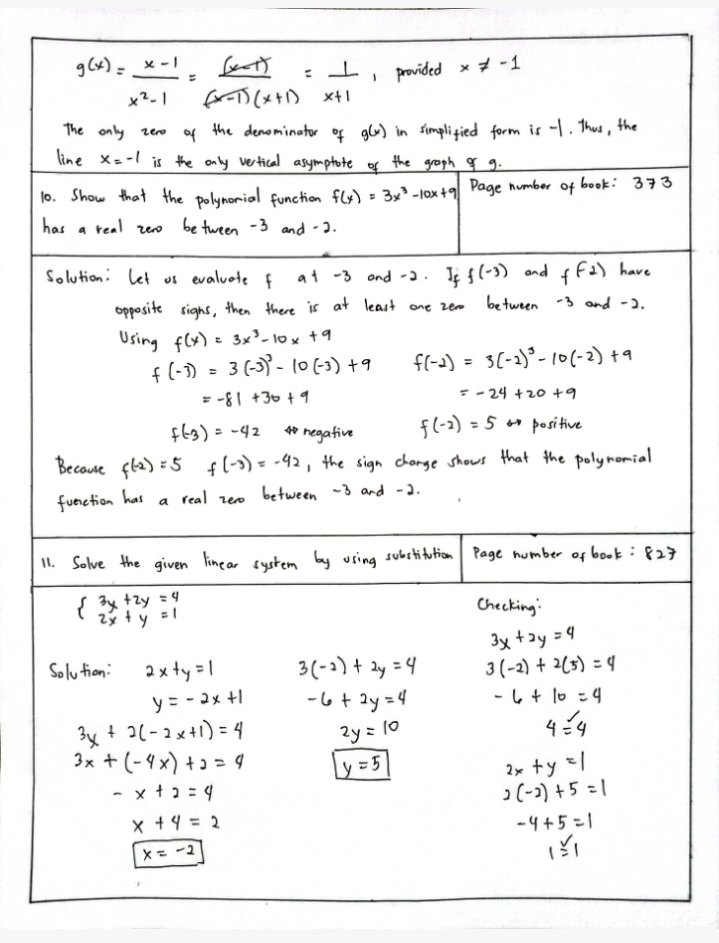 g(x) = x - 1 / x² - 1 = (x-1) / (x-1)(x+1) = 1 / x+1 , provided x ≠ -1
The only zero of the denominator of g(x) in simplified form is -1. Thus, the
line x = -1 is the only vertical asymptote of the graph of g.
10. Show that the polynomial function f(x) = 3x³ -10x+9
has a real zero between -3 and -2.
Page number of book: 373
Solution: Let us evaluate f at -3 and -2. If f(-3) and f(-2) have
opposite signs, then there is at least one zero between -3 and -2.
Using f(x) = 3x³ - 10x + 9
f(-3) = 3(-3)³ - 10(-3) + 9
= -81 + 30 + 9
f(-3) = -42 ↔ negative
f(-2) = 3(-2)³ - 10(-2) + 9
= -24 + 20 + 9
f(-2) = 5 ↔ positive
Because f(-2) = 5 f(-3) = -42, the sign change shows that the polynomial
function has a real zero between -3 and -2.
11. Solve the given linear system by using substitution
Page number of book: 827
{ 3x + 2y = 4
2x + y = 1
Solution: 2x+y = 1
y = -2x +1
3x + 2(-2x+1) = 4
3x + (-4x) + 2 = 4
- x + 2 = 4
x + 4 = 2
x = -2
3(-2) + 2y = 4
-6 + 2y = 4
2y = 10
y = 5
Checking:
3x + 2y = 4
3(-2) + 2(5) = 4
-6 + 10 = 4
4 = 4 ✓
2x + y = 1
2(-2) + 5 = 1
-4 + 5 = 1
1 = 1 ✓